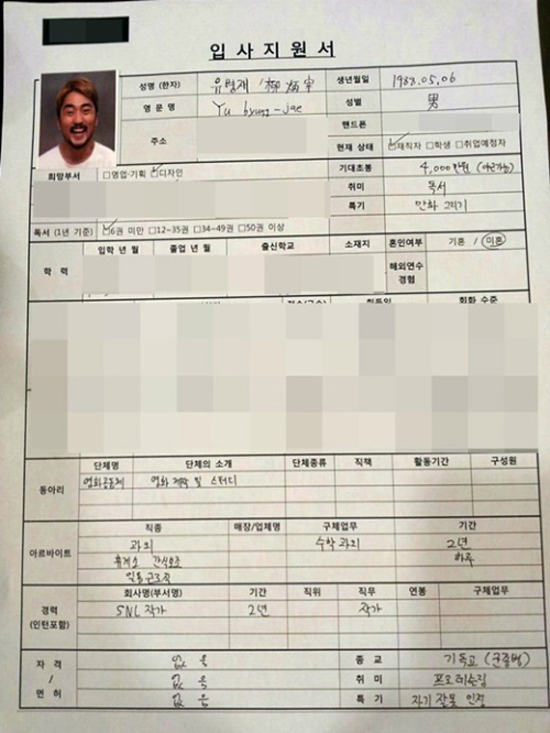 입사지원서
성명 (한자) 유병재 柳 炳 宰 생년월일 1988.05.06
영 문 명 Yu byung-jae 성별 男
주소 핸드폰
현재 상태 ☑재직자 □학생 □취업예정자
희망부서 □영업·기획 ☑디자인 기대초봉 4,000만원 (야근가능)
취미 독서
특기 만화 그리기
독서 (1년 기준) ☑6권 미만 □12~35권 □34~49권 □50권 이상
학 력 입학 년 월 졸업 년 월 출신학교 소재지 혼인여부 기혼 / 미혼
해외연수 경험
회화 수준
동아리 단체명 단체의 소개 단체종류 직책 활동기간 구성원
영화공동체 영화 제작 및 스터디
아르바이트 직종 매장/업체명 구체업무 기간
과외 수학 과외 2년
휴게소 간식보조 하루
일용근로직
경력 (인턴포함) 회사명(부서명) 기간 직위 직무 연봉 구체업무
SNL 작가 2년 작가
자 격 / 면 허 없 음 종 교 기독교 (군종병)
없 음 취 미 프로레슬링
없 음 특 기 자기 잘못 인정